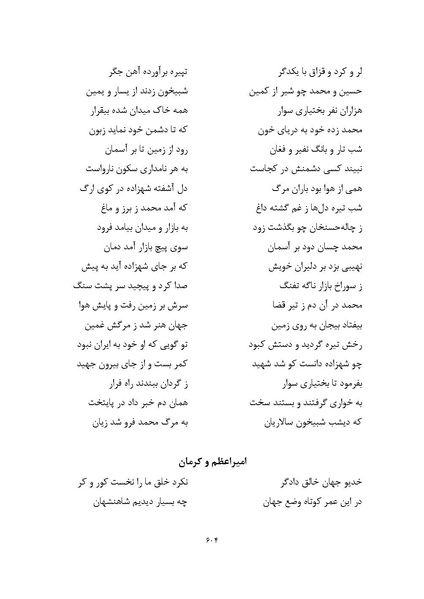 لر و کرد و قزاق با یکدگر تپیره برآورده آهن جگر
حسین و محمد چو شیر از کمین شبیخون زدند از یسار و یمین
هزاران نفر بختیاری سوار همه خاک میدان شده بیقرار
محمد زده خود به دریای خون که تا دشمن خود نماید زبون
شب تار و بانگ نفیر و فغان رود از زمین تا بر آسمان
نبیند کسی دشمنش در کجاست به هر نامداری سکون نارواست
همی از هوا بود باران مرگ دل آشفته شهزاده در کوی ارگ
شب تیره دل‌ها ز غم گشته داغ که آمد محمد ز برز و ماغ
ز چاله‌حسنخان چو بگذشت زود به بازار و میدان بیامد فرود
محمد چسان دود بر آسمان سوی پیچ بازار آمد دمان
نهیبی بزد بر دلیران خویش که بر جای شهزاده آید به پیش
ز سوراخ بازار ناگه تفنگ صدا کرد و پیچید سر پشت سنگ
محمد در آن دم ز تیر قضا سرش بر زمین رفت و پایش هوا
بیفتاد بیجان به روی زمین جهان هنر شد ز مرگش غمین
رخش تیره گردید و دستش کبود تو گویی که او خود به ایران نبود
چو شهزاده دانست کو شد شهید کمر بست و از جای بیرون جهید
بفرمود تا بختیاری سوار ز گردان ببندند راه فرار
به خواری گرفتند و بستند سخت همان دم خبر داد در پایتخت
که دیشب شبیخون سالاریان به مرگ محمد فرو شد زیان
امیراعظم و کرمان
خدیو جهان خالق دادگر نکرد خلق ما را نخست کور و کر
در این عمر کوتاه وضع جهان چه بسیار دیدیم شاهنشهان
۶۰۴